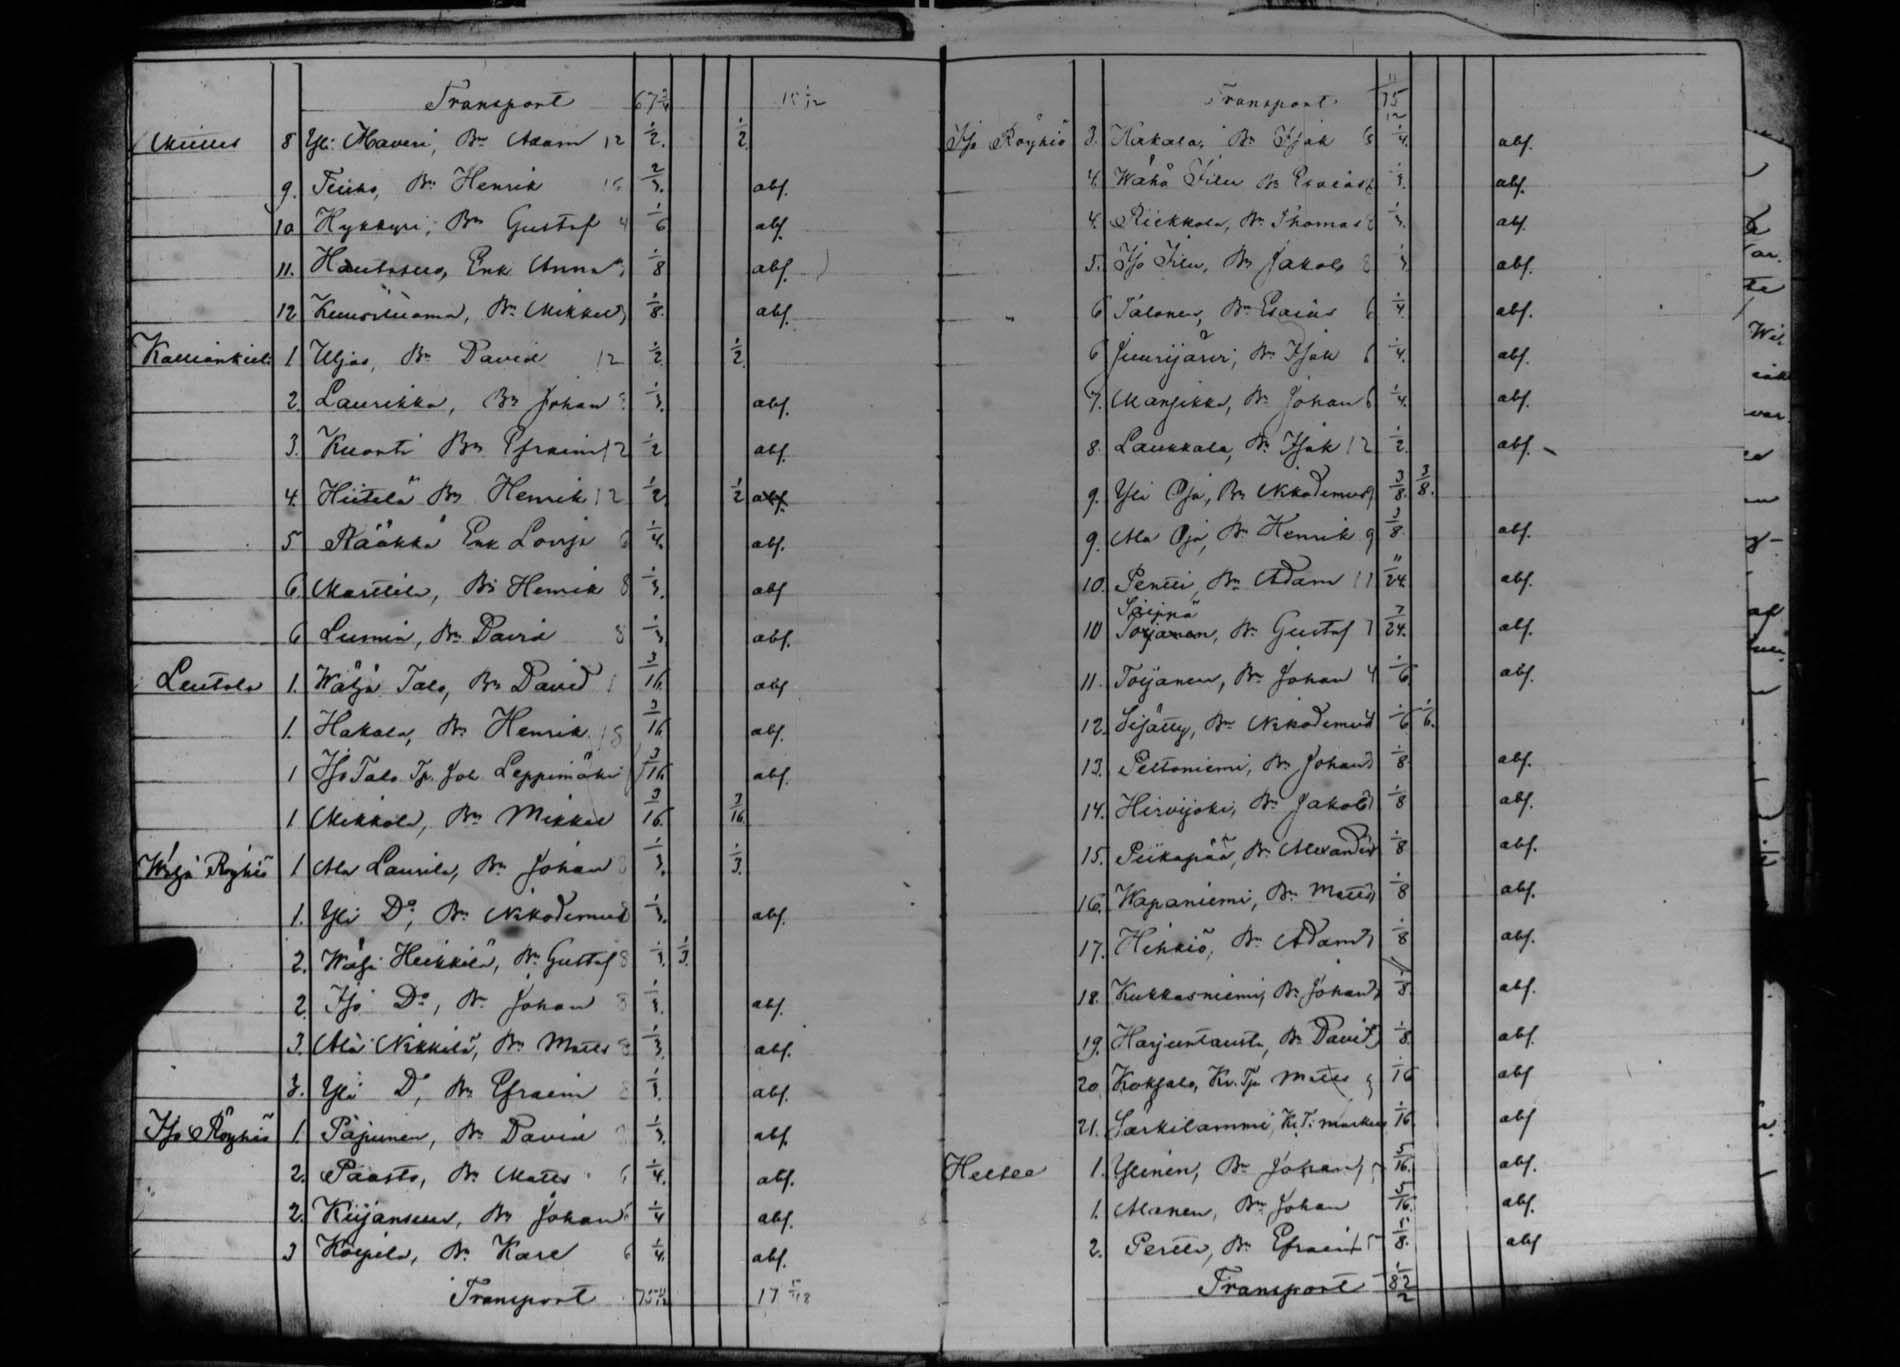 Transport 67
8 Yli Haveri, Bn Adam 12 1/2. 1/2.
9. Teiko, Bn Henrik 16 2/3. abs.
10 Hykkyri, Bn Gustaf 4 1/6 abs.
11. Hautasuo, Enk Anna 3 1/8 abs.
12 Kuusiluoma, Bn Mikkel 3 1/8. abs.
1 Uljas, Bn David 12 1/2. 1/2.
2. Laurikka, Bn Johan 8 1/3. abs.
3. Kuonti Bn Efraim 12 1/2 abs.
4. Hietelä Bn Henrik 12 1/2. 1/2 abs.
5 Rääkkä Enk Lovisa 6 1/4. abs.
6. Marttila, Bn Henrik 8 1/3. abs
6 Lumia, Bn David 8 1/3. abs.
Leutola 1. Wähä Talo, Bn David 3/16. abs
1. Hakola, Bn Henrik 3/16 abs.
1 Iso Talo Tp. Joh. Leppimäki 3/16. abs.
1 Mikkola, Bn Mikkel 3/16. 3/16.
Wähä Röyhiö 1 Ala Laurila, Bn Johan 8 1/3. 1/3.
1. Yli Do, Bn Nikodemus 1/3. abs.
2. Wähä Heikkilä, Bn Gustaf 8 1/3. 1/3.
2. Iso Do, Bn Johan 8 1/3. abs.
3. Ala Nikkilä, Bn Matts 8 1/3. abs.
3. Yli Do, Bn Efraim 8 1/3. abs.
Iso Röyhiö 1. Pajunen, Bn David 1/3. abs.
2. Paasto, Bn Matts 6 1/4. abs.
2. Kiijansuu, Bn Johan 6 1/4 abs.
3 Koipila, Bn Karl 6 1/4. abs.
Transport 75 11/12 17
Transport 75 11/12
Iso Röyhiö 3. Kakala, Bn Isak 6 1/4. abs.
4. Wähä Filu Bn Esaias 1/3. abs.
4. Riekkola, Bn Thomas 8 1/3. abs.
5. Iso Filu, Bn Jakob 8 1/3 abs.
" 6 Talonen, Bn Esaias 6 1/4. abs.
6 Juurijärvi, Bn Isak 6 1/4. abs.
7. Mansikka, Bn Johan 6 1/4. abs.
8. Laukkala, Bn Isak 12 1/2. abs.
9. Yli Oja, Bn Nikodemus 9 3/8. 3/8.
9. Ala Oja, Bn Henrik 9 3/8. abs.
10. Pentti, Bn Adam 11 11/24 abs.
10 Toijanen, Bn Gustaf 7 7/24. abs.
11. Toijanen, Bn Johan 4 1/6. abs.
12. Sijätty, Bn Nikodemus 1/6 1/6.
13. Peltoniemi, Bn Johan 3 1/8. abs.
14. Hirvijoki, Bn Jakob 3 1/8 abs.
15. Piikapää, Bn Alexander 1/8 abs.
16. Wapaniemi, Bn Matts 3 1/8 abs.
17. Hihkiö, Bn Adam 3 1/8 abs.
18. Kukkasniemi, Bn Johan 3 1/8. abs.
19. Harjuntausta, Bn David 3 1/8. abs.
20 Koksala, Kr. Tp Matts 1/16 abs
21. Särkilammi, Kr. T. Markus 1/16. abs
1. Ylinen, Bn Johan 5/16. abs.
1. Alanen, Bn Johan 5/16. abs.
2. Perttu, Bn Efraim 15 5/8. abs
Transport 82 1/2